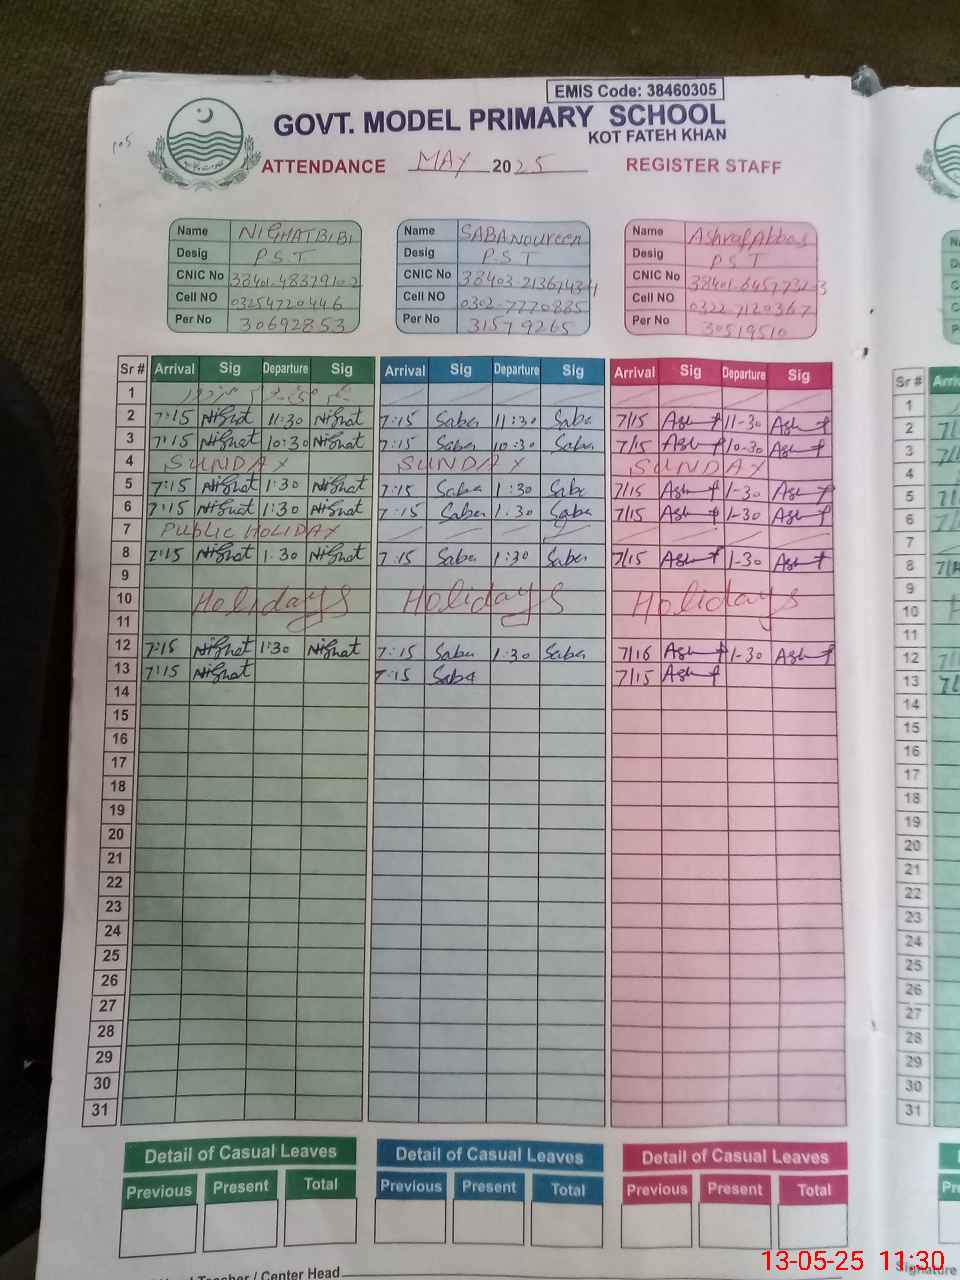 EMIS Code: 38460305
GOVT. MODEL PRIMARY SCHOOL
KOT FATEH KHAN
ATTENDANCE MAY 2025 REGISTER STAFF
Name NIGHAT BIBI Name SABA Noureen Name Ashraf Abbas
Desig P S T Desig P S T Desig P S T
CNIC No CNIC No CNIC No
Cell NO 03254720446 Cell NO 0302-7770885 Cell NO 0322-7120367
Per No 30692853 Per No 31579265 Per No 30519510
Sr # Arrival Sig Departure Sig Arrival Sig Departure Sig Arrival Sig Departure Sig Sr #
1 1
2 7:15 Nighat 11:30 Nighat 7:15 Saba 11:30 Saba 7/15 11-30 2
3 7:15 Nighat 10:30 Nighat 7:15 Saba 10:30 Saba 7/15 10-30 3
4 SUNDAY SUNDAY SUNDAY 4
5 7:15 Nighat 1:30 Nighat 7:15 Saba 1:30 Saba 7/15 1-30 5
6 7:15 Nighat 1:30 Nighat 7:15 Saba 1:30 Saba 7/15 1-30 6
7 PUBLIC HOLIDAY 7
8 7:15 Nighat 1:30 Nighat 7:15 Saba 1:30 Saba 7/15 1-30 8
9 9
10 Holidays Holidays Holidays 10
11 11
12 7:15 Nighat 1:30 Nighat 7:15 Saba 1:30 Saba 7/16 1-30 12
13 7:15 Nighat 7:15 Saba 7/15 13
14 14
15 15
16 16
17 17
18 18
19 19
20 20
21 21
22 22
23 23
24 24
25 25
26 26
27 27
28 28
29 29
30 30
31 31
Detail of Casual Leaves Detail of Casual Leaves Detail of Casual Leaves
Previous Present Total Previous Present Total Previous Present Total
Teacher / Center Head
Signature
13-05-25 11:30